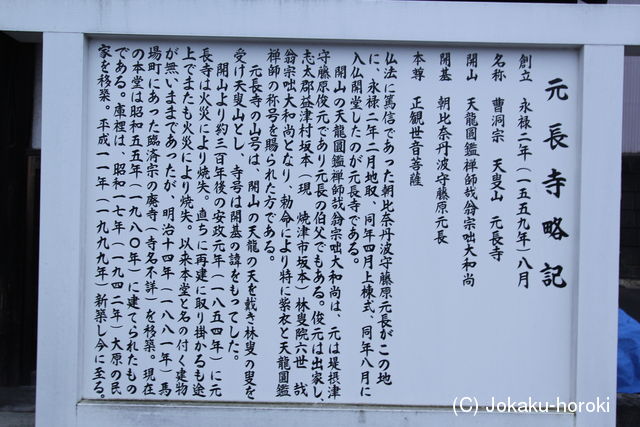 元長寺略記
創立　永禄二年（一五五九年）八月
名称　曹洞宗　天叟山　元長寺
開山　天龍圓鑑禅師哉翁宗咄大和尚
開基　朝比奈丹波守藤原元長
本尊　正観世音菩薩
仏法に篤信であった朝比奈丹波守藤原元長がこの地
に、永禄二年二月地取、同年四月上棟式、同年八月に
入仏開堂したのが元長寺である。
開山の天龍圓鑑禅師哉翁宗咄大和尚は、元は堤摂津
守藤原俊元であり元長の伯父でもある。俊元は出家し、
志太郡益津村坂本（現　焼津市坂本）林叟院六世　哉
翁宗咄大和尚となり、勅命により特に紫衣と天龍圓鑑
禅師の称号を賜られた方である。
元長寺の山号は、開山の天龍の天を戴き林叟の叟を
受け天叟山とし、寺号は開基の諱をもってした。
開山より約三百年後の安政元年（一八五四年）に元
長寺は火災により焼失。直ちに再建に取り掛かるも途
上でまたも火災により焼失。以来本堂と名の付く建物
が無いままであったが、明治十四年（一八八一年）馬
場町にあった臨済宗の廃寺（寺名不詳）を移築。現在
の本堂は昭和五五年（一九八〇年）に建てられたもの
である。庫裡は、昭和一七年（一九四二年）大原の民
家を移築。平成一一年（一九九九年）新築し今に至る。
(C) Jokaku-horoki